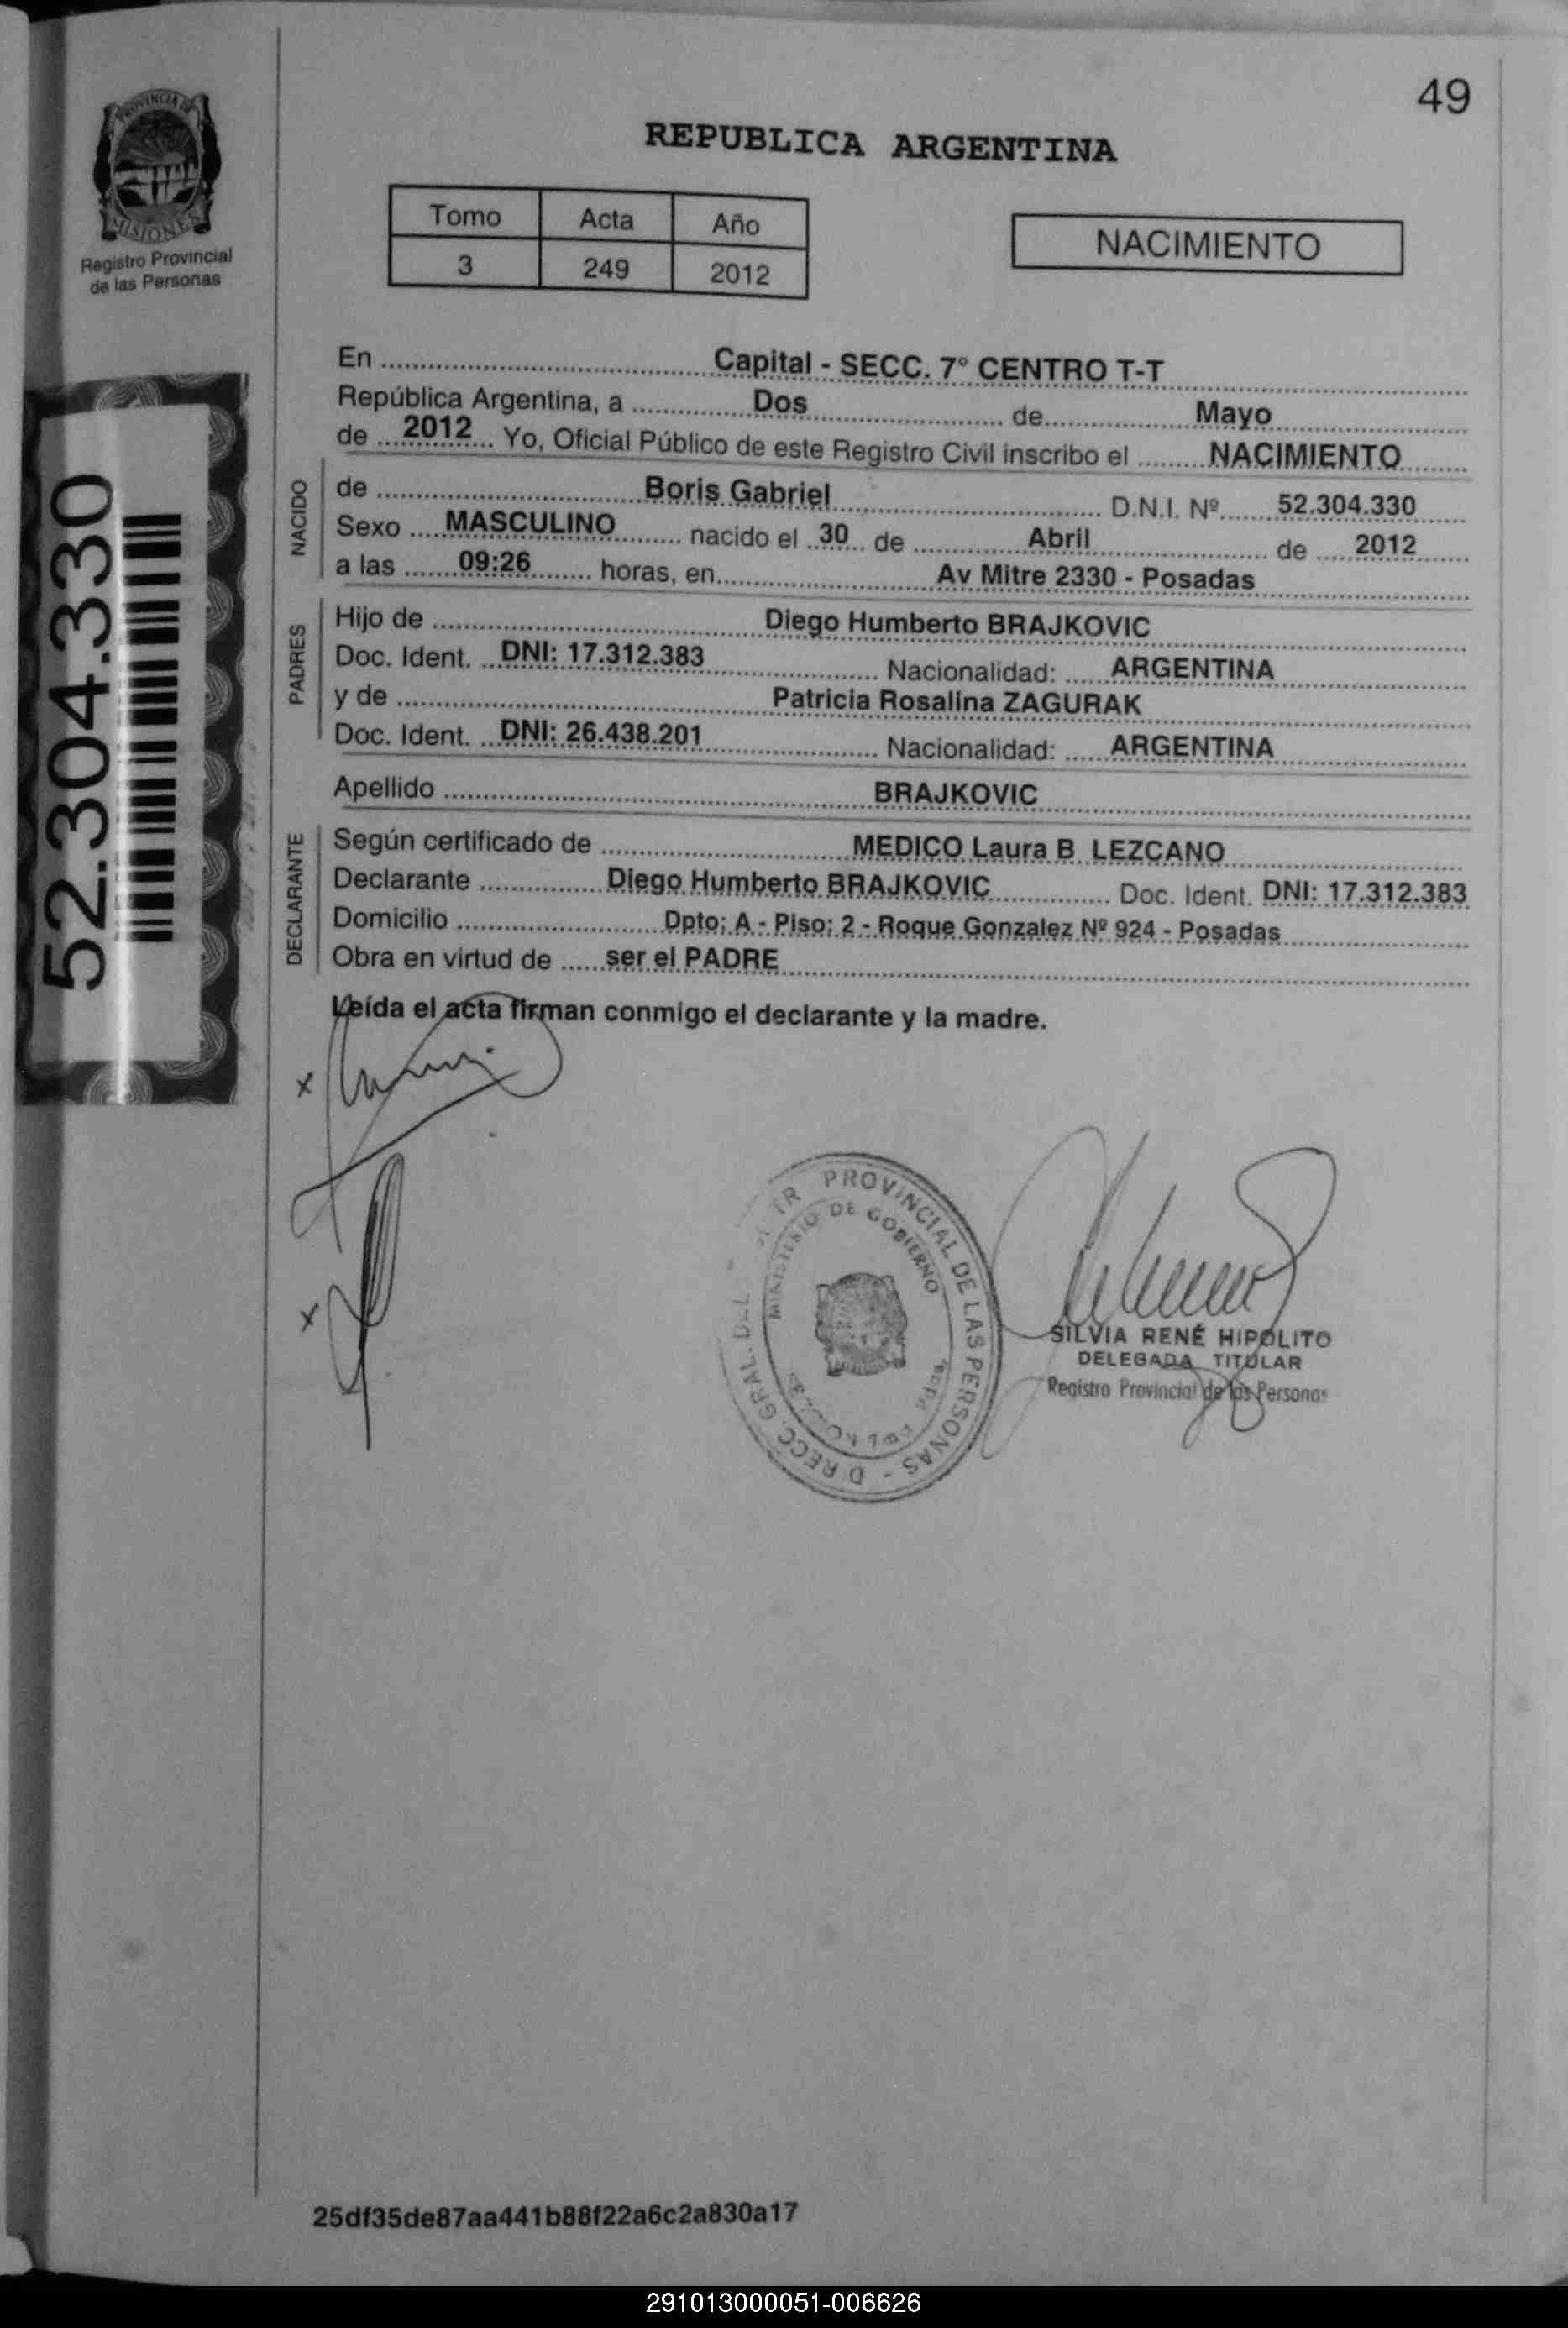 49
PROVINCIA DE
MISIONES
Registro Provincial
de las Personas
REPUBLICA ARGENTINA
Tomo Acta Año
3 249 2012
NACIMIENTO
52.304.330
En Capital - SECC. 7° CENTRO T-T
República Argentina, a Dos de Mayo
de 2012 Yo, Oficial Público de este Registro Civil inscribo el NACIMIENTO
NACIDO
de Boris Gabriel D.N.I. Nº 52.304.330
Sexo MASCULINO nacido el 30 de Abril de 2012
a las 09:26 horas, en Av Mitre 2330 - Posadas
PADRES
Hijo de Diego Humberto BRAJKOVIC
Doc. Ident. DNI: 17.312.383 Nacionalidad: ARGENTINA
y de Patricia Rosalina ZAGURAK
Doc. Ident. DNI: 26.438.201 Nacionalidad: ARGENTINA
Apellido BRAJKOVIC
DECLARANTE
Según certificado de MEDICO Laura B LEZCANO
Declarante Diego Humberto BRAJKOVIC Doc. Ident. DNI: 17.312.383
Domicilio Dpto: A - Piso: 2 - Roque Gonzalez Nº 924 - Posadas
Obra en virtud de ser el PADRE
Leída el acta firman conmigo el declarante y la madre.
x
x
PROVINCIAL DE LAS PERSONAS -
MINISTERIO DE GOBIERNO
SILVIA RENÉ HIPOLITO
DELEGADA TITULAR
Registro Provincial de las Personas
25df35de87aa441b88f22a6c2a830a17
291013000051-006626